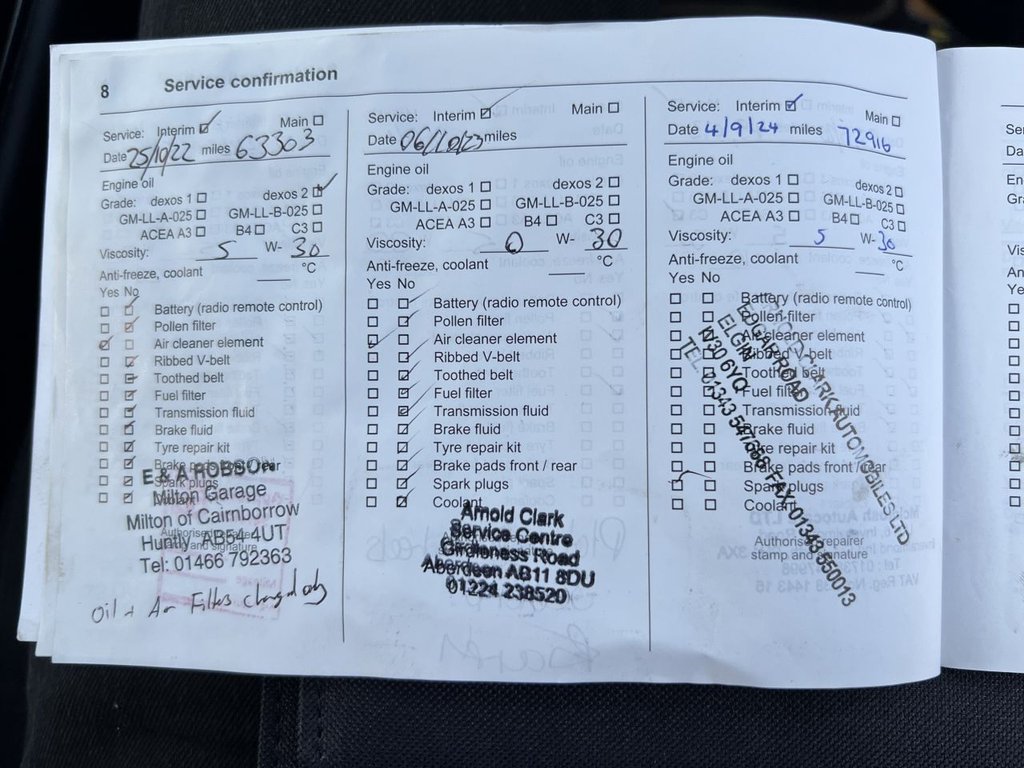 8 Service confirmation
Service: Interim ☑ Main ☐
Date 25/10/22 miles 63303
Engine oil
Grade: dexos 1 ☐ dexos 2 ☑
GM-LL-A-025 ☐ GM-LL-B-025 ☐
ACEA A3 ☐ B4 ☐ C3 ☐
Viscosity: 5 W- 30
Anti-freeze, coolant °C
Yes No
Battery (radio remote control)
Pollen filter
Air cleaner element
Ribbed V-belt
Toothed belt
Fuel filter
Transmission fluid
Brake fluid
Tyre repair kit
Brake pads rear
Spark plugs
E & A ROBSON
Milton Garage
Milton of Cairnborrow
Huntly AB54 4UT
Tel: 01466 792363
Authorised
stamp and signature
Oil + Air Filters changed only
Service: Interim ☑ Main ☐
Date 06/10/23 miles
Engine oil
Grade: dexos 1 ☐ dexos 2 ☐
GM-LL-A-025 ☐ GM-LL-B-025 ☐
ACEA A3 ☐ B4 ☐ C3 ☐
Viscosity: 0 W- 30
Anti-freeze, coolant °C
Yes No
Battery (radio remote control)
Pollen filter
Air cleaner element
Ribbed V-belt
Toothed belt
Fuel filter
Transmission fluid
Brake fluid
Tyre repair kit
Brake pads front / rear
Spark plugs
Coolant
Arnold Clark
Service Centre
Girdleness Road
Aberdeen AB11 8DU
01224 238520
Service: Interim ☑ Main ☐
Date 4/9/24 miles 72916
Engine oil
Grade: dexos 1 ☐ dexos 2 ☐
GM-LL-A-025 ☐ GM-LL-B-025 ☐
ACEA A3 ☐ B4 ☐ C3 ☐
Viscosity: 5 W- 30
Anti-freeze, coolant °C
Yes No
Battery (radio remote control)
Pollen filter
Air cleaner element
Ribbed V-belt
Toothed belt
Fuel filter
Transmission fluid
Brake fluid
Tyre repair kit
Brake pads front / rear
Spark plugs
Coolant
Authorised repairer
stamp and signature
AUTOMOBILES LTD
EDGAR ROAD
ELGIN
IV30 6YQ
TEL: 01343 547668 FAX: 01343 550013